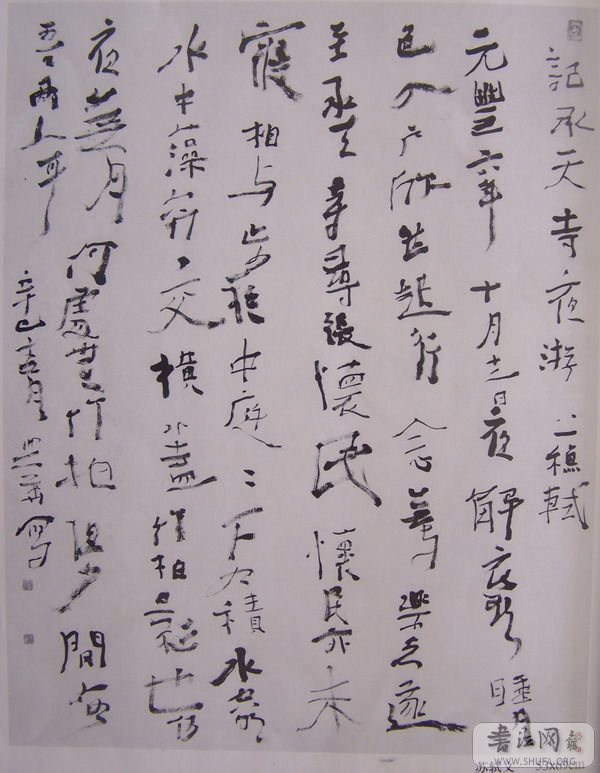 記承天寺夜游 蘇軾
元豐六年 十月十二日夜 解衣欲睡月
色入户欣然起行 念無与樂者遂
至承天寺尋張懷民 懷民亦未
寢 相与步於中庭〻下如積水空明
水中藻荇交橫 蓋竹柏影也 何
夜無月 何處無竹柏 但少間如
吾兩人耳
辛巳 月 寫
书法网
WWW.SHUFA.ORG
苏轼文 53x69cm